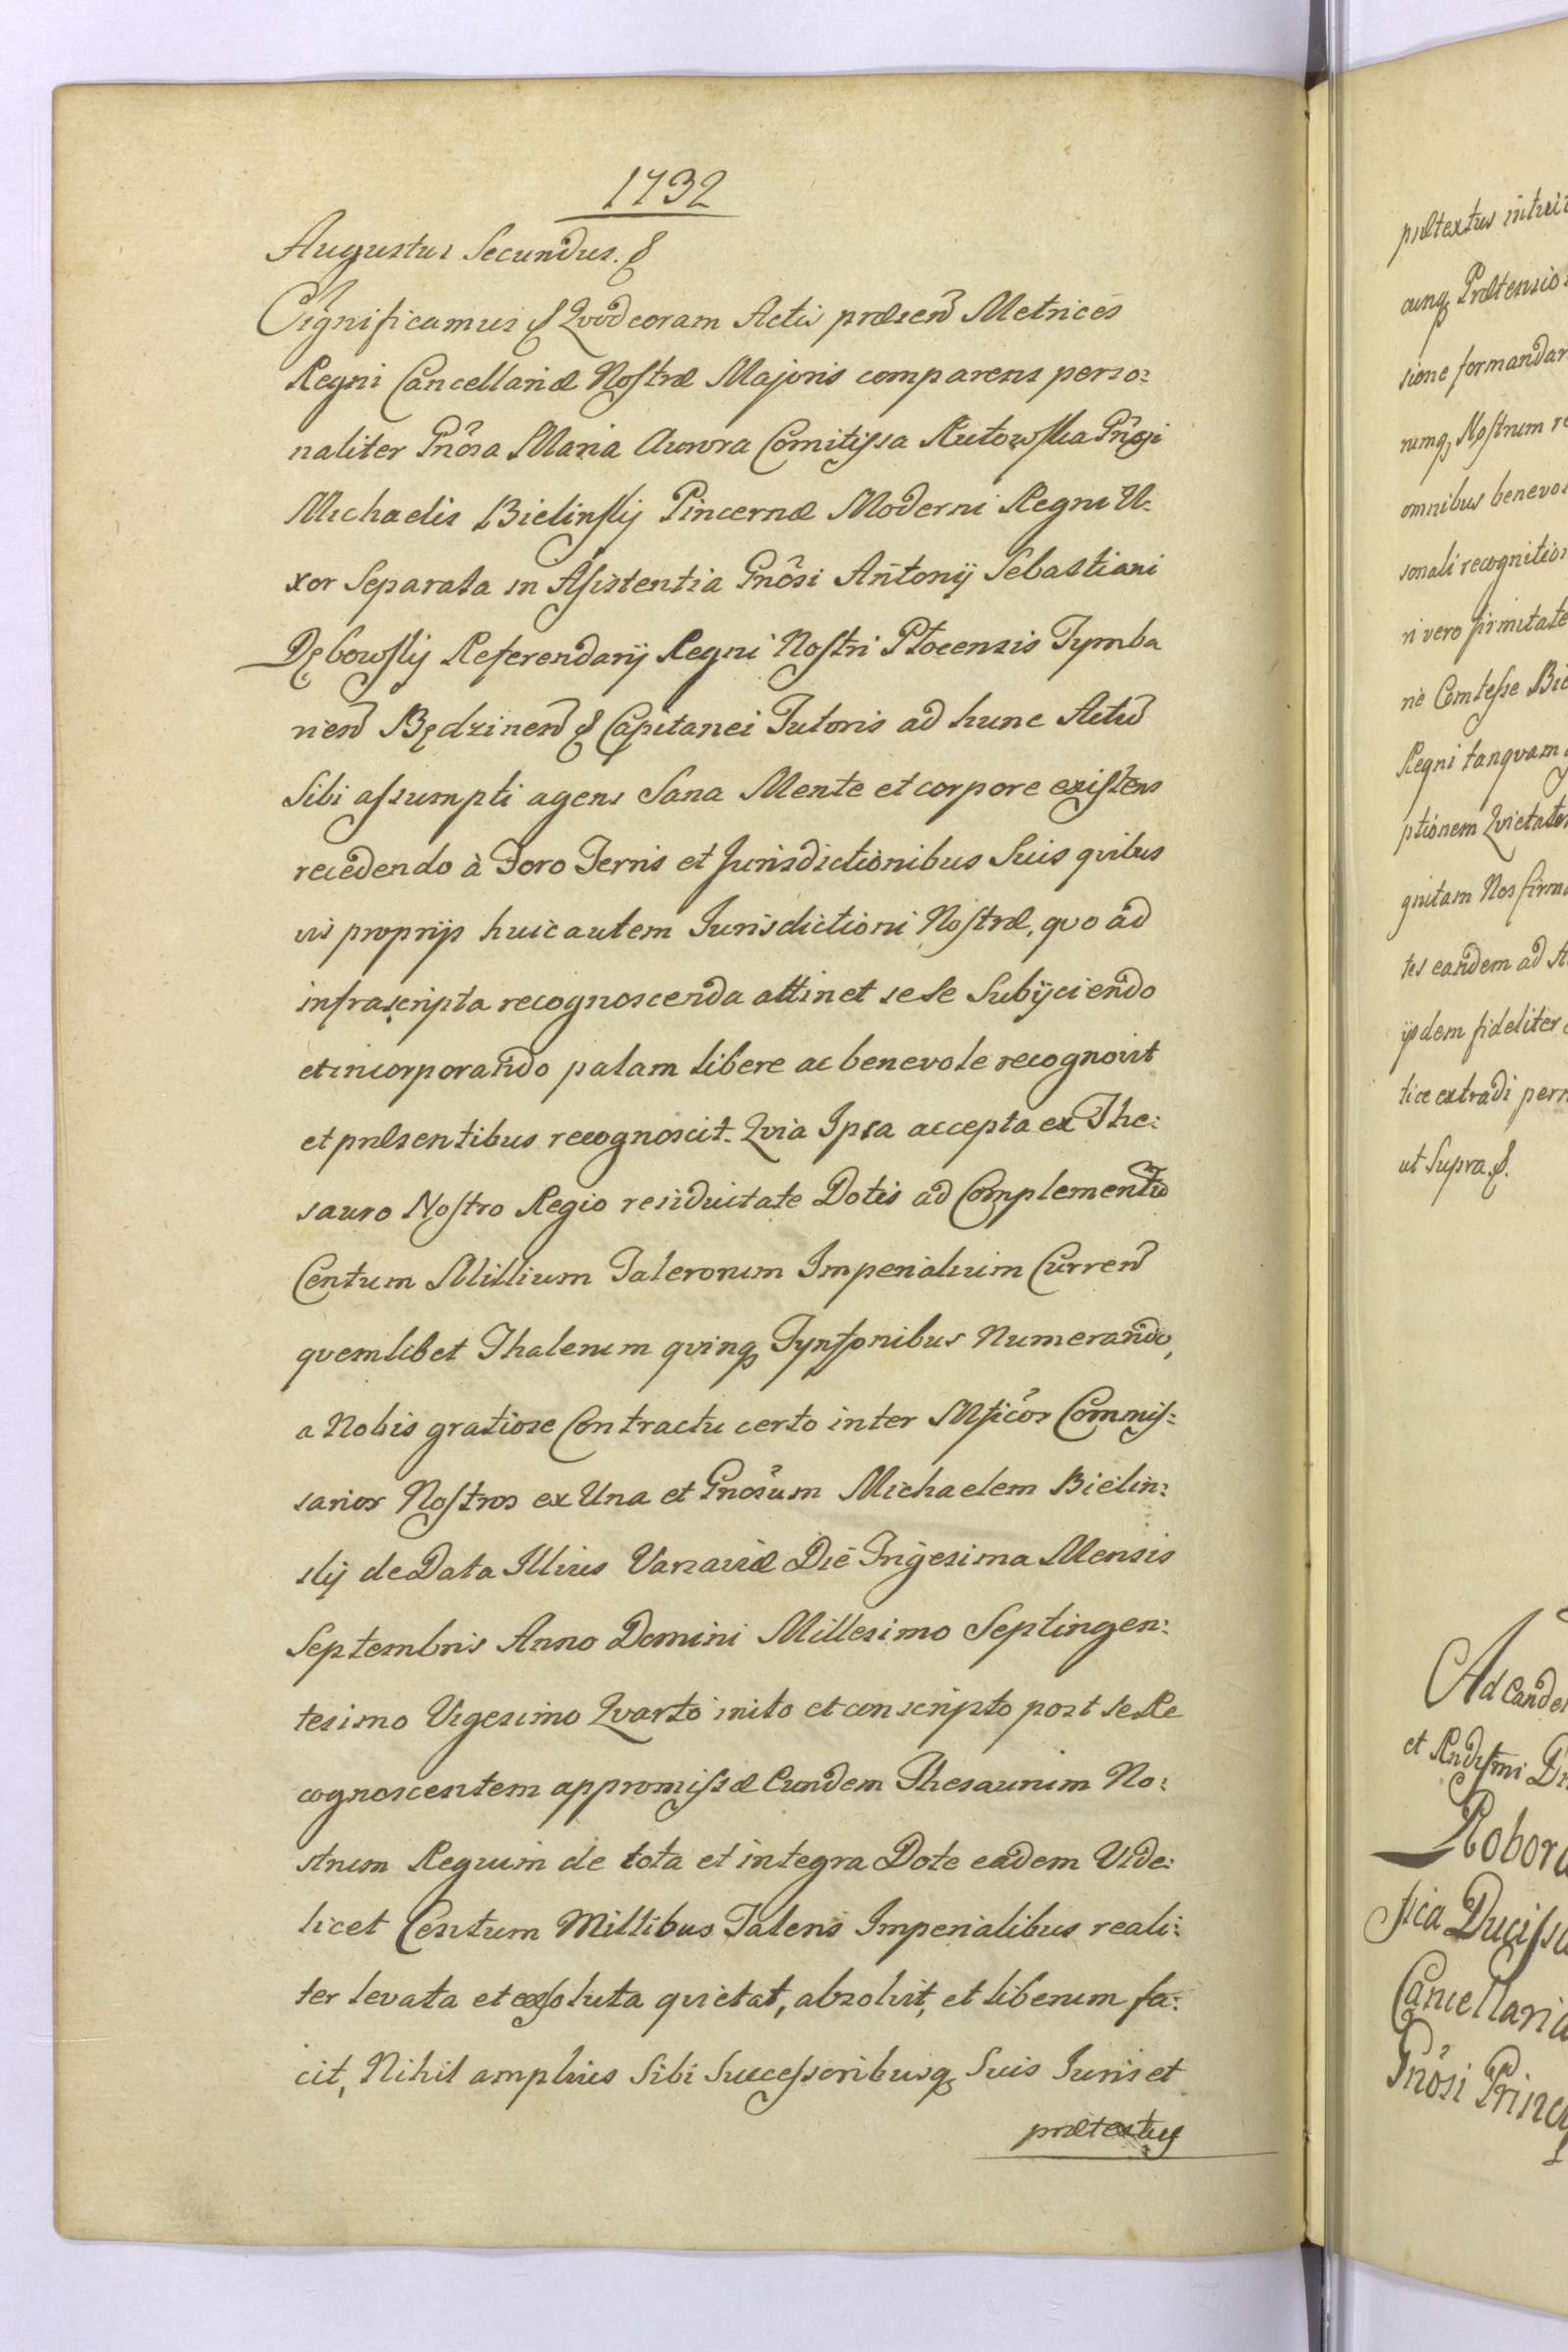 1732
Augustus Secundus. &
Significamus & Qvod coram Actis præsen̄ Metrices
Regni Cancellariæ Nostræ Majoris comparens perso:
naliter Gnôsa Maria Aurora Comitissa Rutowska Gnôsi
Michaelis Bielinskÿ Pincernæ Moderni Regni U:
xor Separata in Assistentia Gnôsi Antonÿ Sebastiani
Dębowskÿ Referendarÿ Regni Nostri Płocensis Tymba
rien̄ Będzinen̄ & Capitanei Tutoris ad hunc Actū
Sibi assumpti agens Sana Mente et corpore existens
recedendo à Foro Terris et Jurisdictionibus Suis qvibus
vis proprÿs huic autem Jurisdictioni Nostræ, qvo ad
infrascripta recognoscenda attinet sese Subÿciendo
et incorporando palam libere ac benevole recognovit
et præsentibus recognoscit. Qvia Ipsa accepta ex The:
sauro Nostro Regio residuitate Dotis ad Complementū
Centum Millium Taleronum Imperialium Curren̄
qvemlibet Thalerum qvinq Tynfonibus Numerando,
a Nobis gratiose Contractu certo inter Mficôs Commis:
sarios Nostros ex Una et Gnôsum Michaelem Bielin:
skÿ de Data Illius Varsaviæ Die Trigesima Mensis
Septembris Anno Domini Millesimo Septingen:
tesimo Vigesimo Qvarto inito et conscripto post se Re
cognoscentem appromissæ Eundem Thesaurum No:
strum Regium de tota et integra Dote eadem Vide:
licet Centum Millibus Taleris Imperialibus reali:
ter levata et exsoluta qvietat, absolvit, et liberum fa:
cit, Nihil amplius Sibi Successoribusq Suis Juris et
prætextus
prætextus intuit
cunq Prætensio
sione formandar
rumq, Nostrum re
omnibus benevo
sonali recognition
ri vero firmitate
rie Comtesse Bie
Regni tanqvam
ptionem Qvietato
gnitam Nos firm
tes eandem ad A
ÿsdem fideliter
tice extradi perm
ut Supra &.
Ad Eande
et Rndissmi D
Robora
stica Ducissa
Cancellaria
Gnôsi Princ